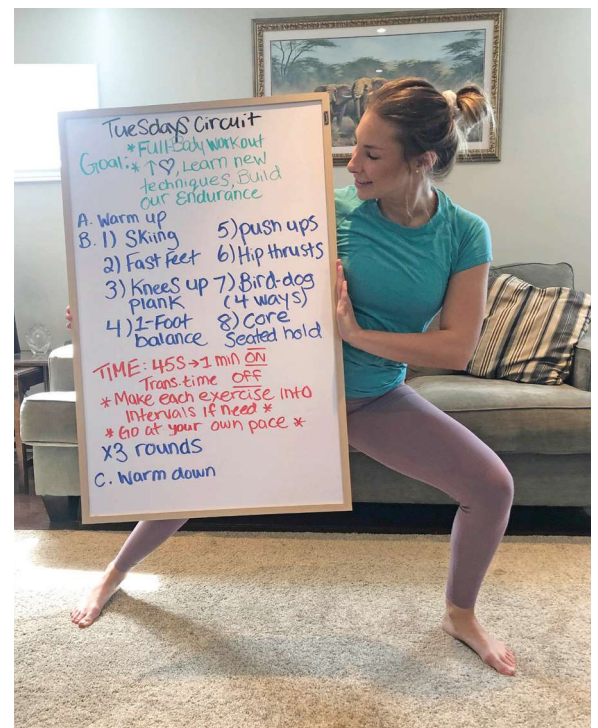 Tuesdays Circuit
*Full-Body Workout
Goal:* ↑♡, Learn new
techniques, Build
our Endurance
A. Warm up
B. 1) Skiing
2) Fast Feet
3) Knees up
plank
4) 1-Foot
balance
5) push ups
6) Hip thrusts
7) Bird-dog
(4 ways)
8) Core
Seated hold
TIME: 45s→1 min ON
Trans. time OFF
*Make each exercise into
Intervals if need *
* Go at your own pace *
x3 rounds
C. Warm down